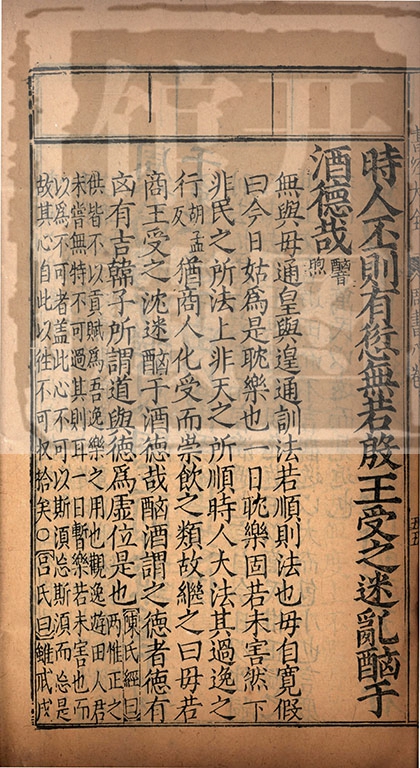 時人丕則有愆無若殷王受之迷亂酗于
酒德哉
煦
無與毋通皇與遑通訓法若順則法也毋自寬假
曰今日姑爲是耽樂也一日耽樂固若未害然下
非民之所法上非天之所順時人大法其過逸之
行胡孟反猶商人化受而崇飲之類故繼之曰毋若
商王受之沈迷酗于酒德哉酗酒謂之德者德有
凶有吉韓子所謂道與德爲虛位是也陳氏經曰兩惟正之
供皆不以貢賦爲吾逸樂之用也觀逸遊田人君
未嘗無特不可過其則耳一日暫樂若未害也而
以爲不可者盖此心不可以斯湏忘斯湏而忘是
故其心自此以徃不可収拾矣○呂氏曰雖戒成